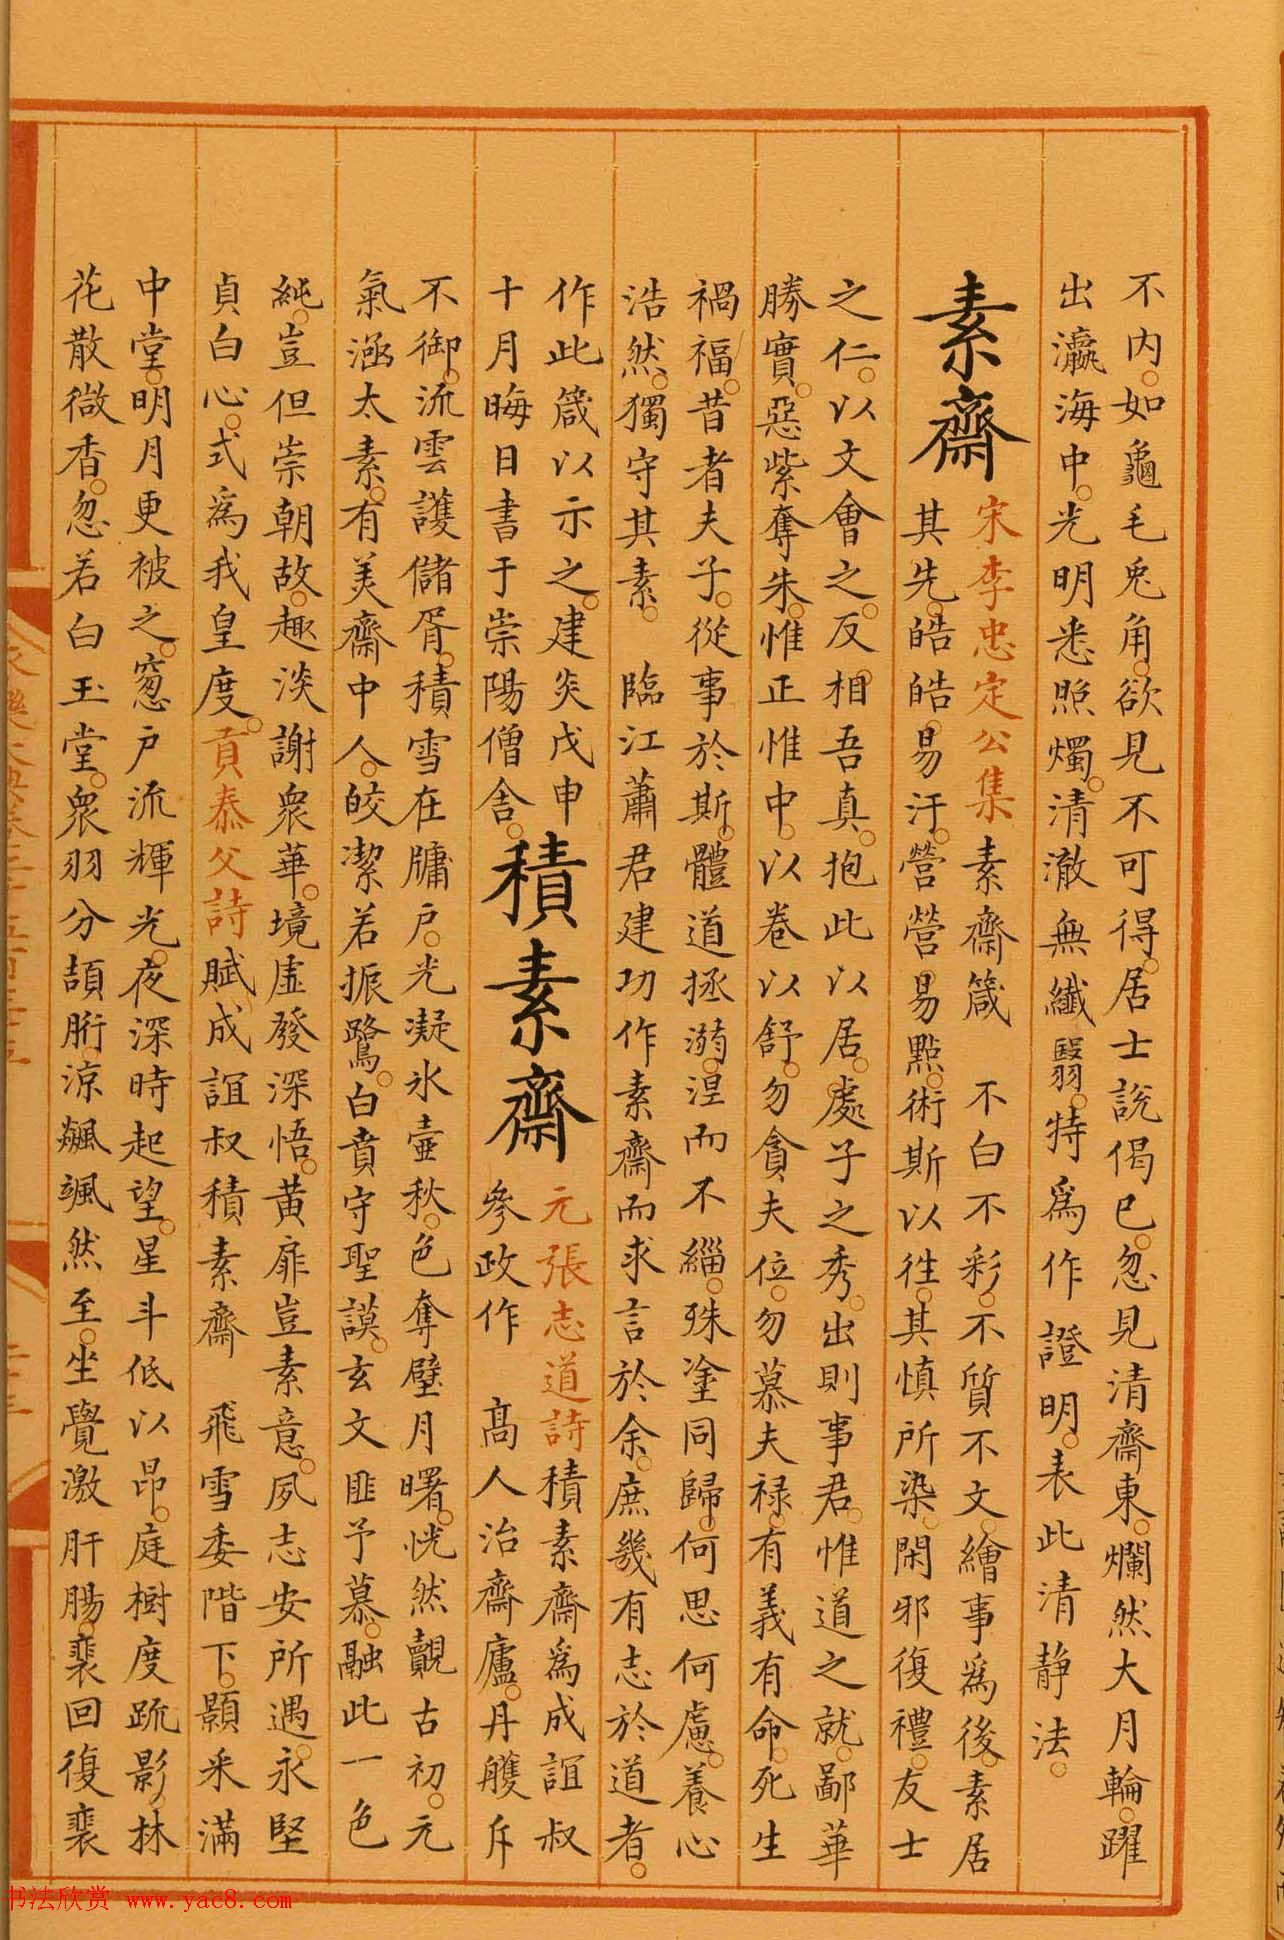 不内如龜毛兎角欲見不可得居士說偈已忽見清齋東爛然大月輪躍
出瀛海中光明悉照燭清澈無纖翳特爲作證明表此清靜法
素齋
宋李忠定公集素齋箴 不白不彩不質不文繪事爲後素居
其先皓皓易汙營營易點術斯以徃其慎所染閑邪復禮友士
之仁以文會之反相吾真抱此以居處子之秀出則事君惟道之就鄙華
勝實惡紫奪朱惟正惟中以卷以舒勿貪夫位勿慕夫祿有義有命死生
禍福昔者夫子從事於斯體道拯溺涅而不緇殊塗同歸何思何慮養心
浩然獨守其素 臨江蕭君建功作素齋而求言於余庶幾有志於道者
作此箴以示之建炎戊申
十月晦日書于崇陽僧舍
積素齋
元張志道詩積素齋爲成誼叔
參政作 髙人治齋廬丹雘斥
不御流雲護儲胥積雪在牗戶光凝氷壺秋色奪壁月曙恍然覿古初元
氣涵太素有美齋中人皎潔若振鷺白賁守聖謨玄文匪予慕融此一色
純豈但崇朝故趣淡謝衆華境虛發深悟黄扉豈素意夙志安所遇永堅
貞白心式爲我皇度貢泰父詩賦成誼叔積素齋 飛雪委階下顥采滿
中堂明月更被之窻戶流輝光夜深時起望星斗低以昂庭樹度疏影林
花散微香忽若白玉堂衆羽分頡胻涼飇颯然至坐覺激肝腸裴回復裴
书法欣赏 www.yac8.com